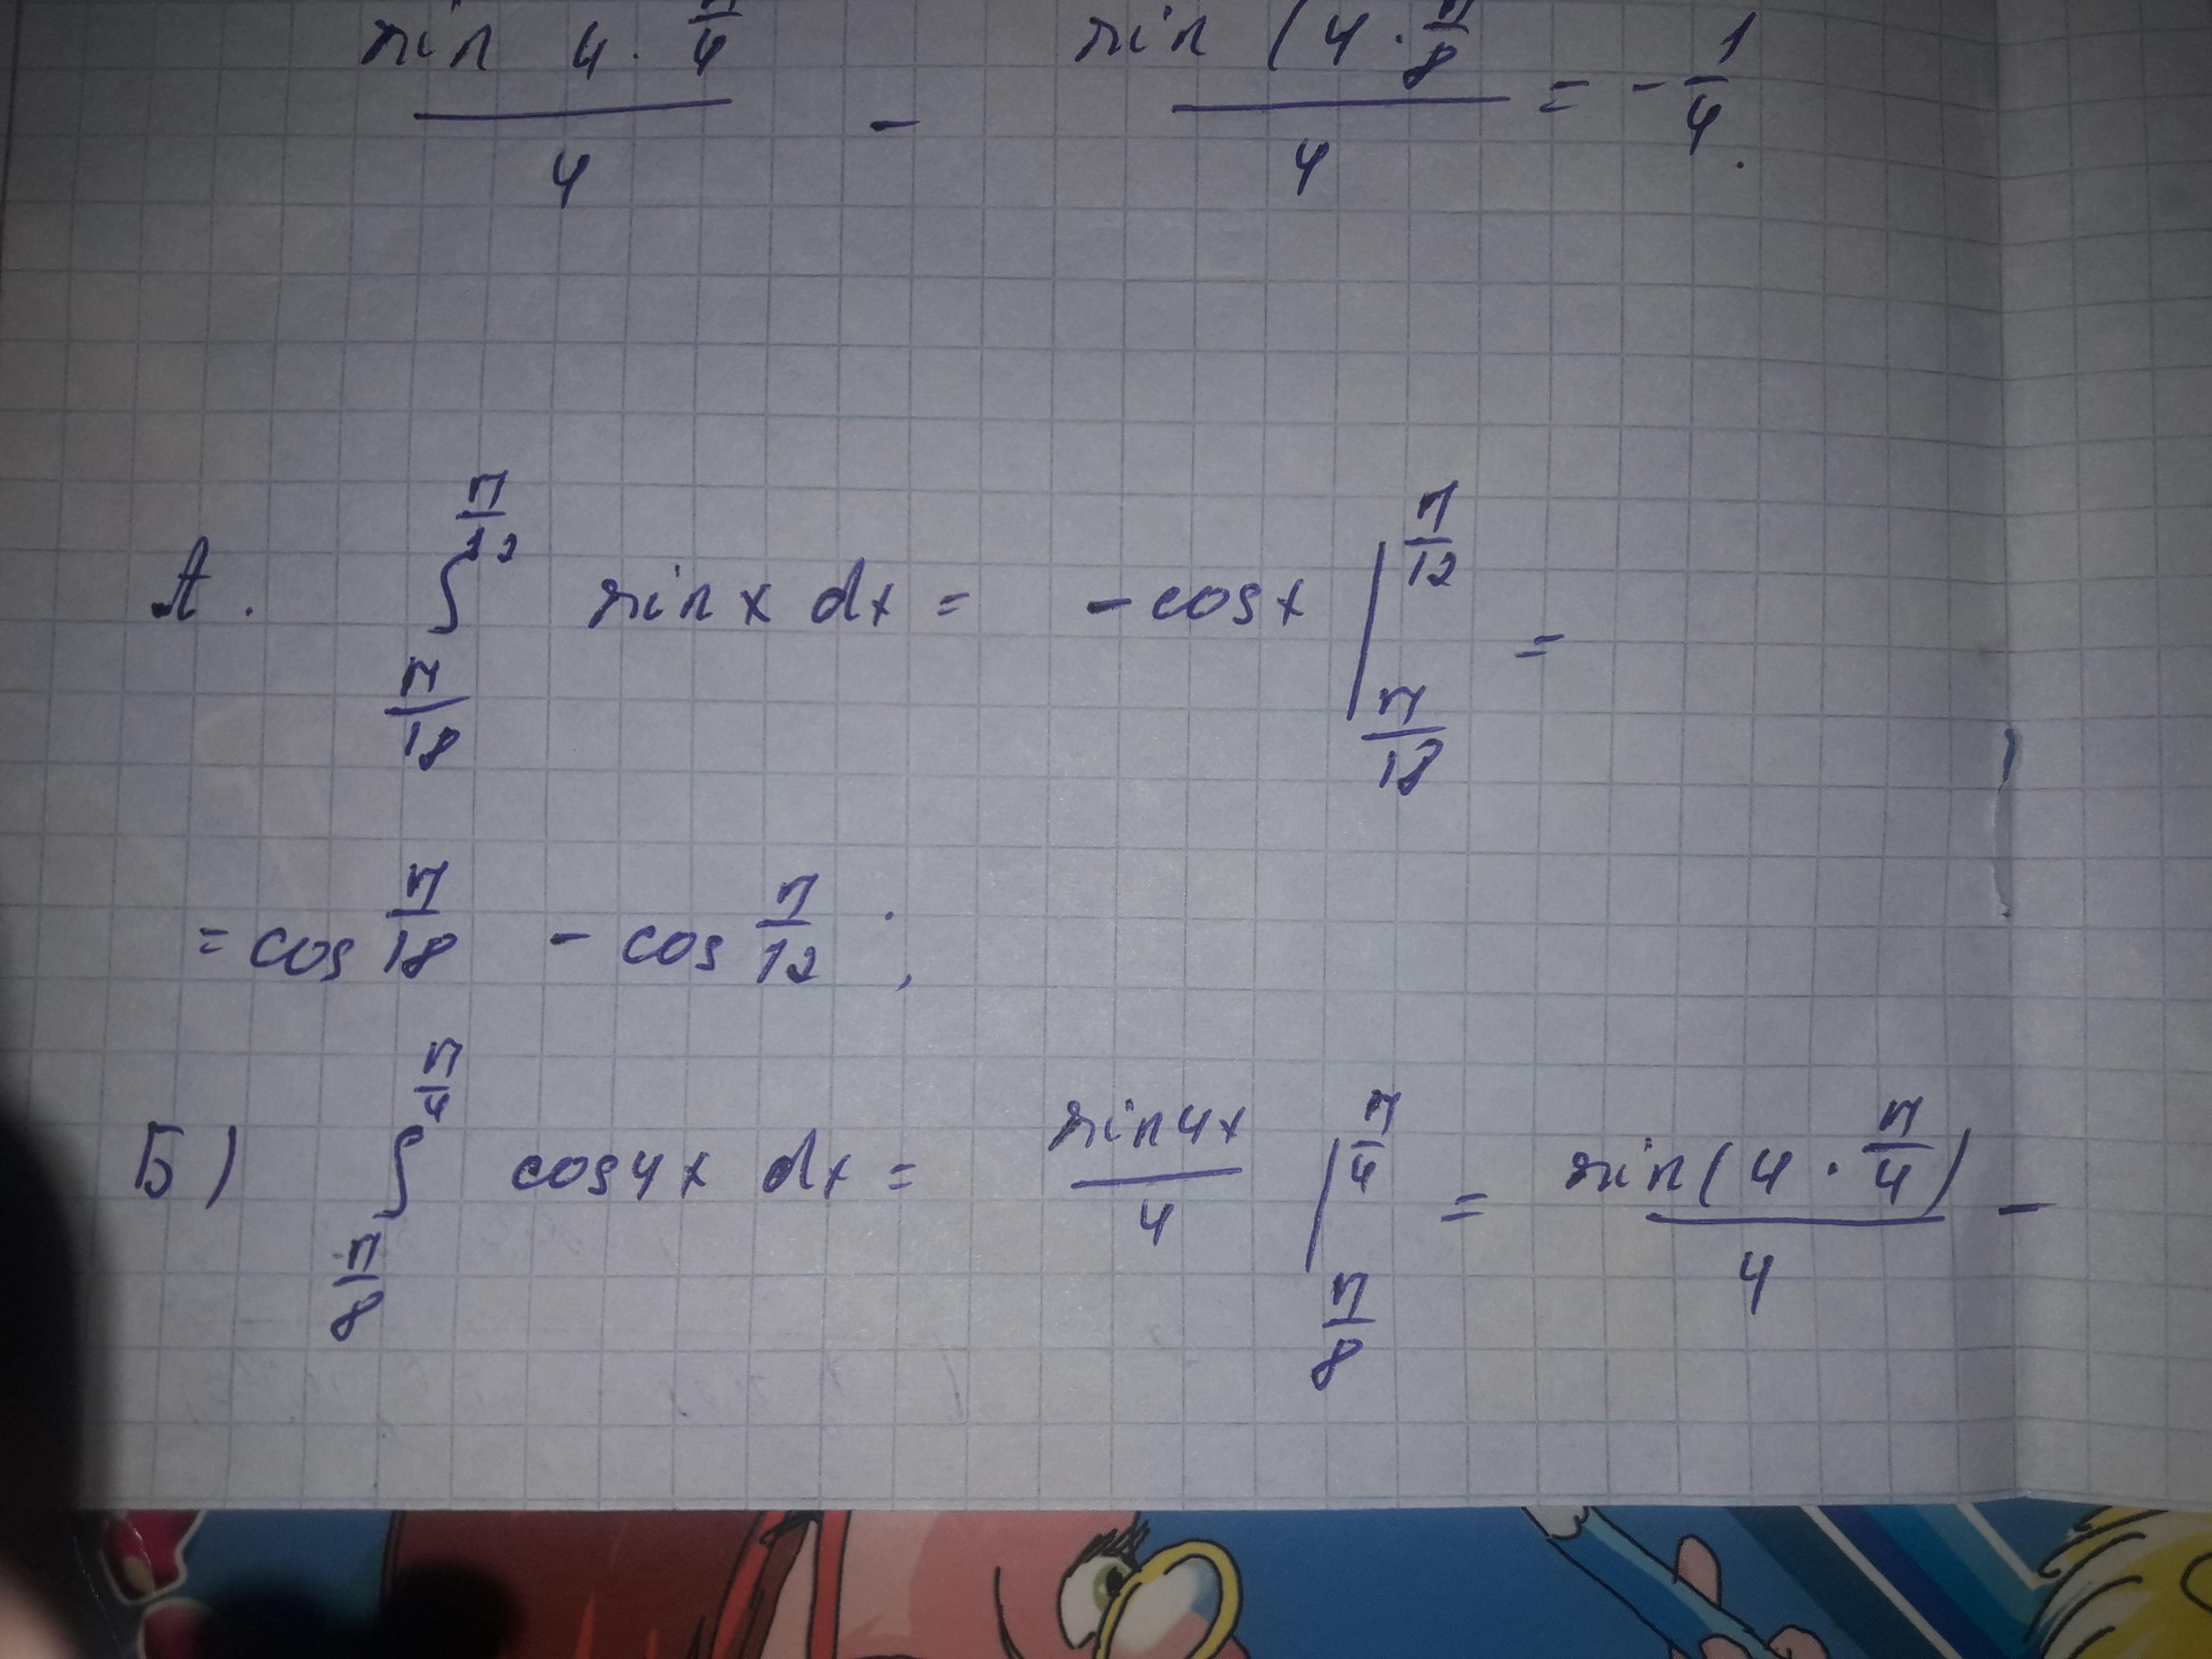 sin 4 · π/4 / 4 - sin (4 · π/8 / 4 = - 1/4.
А. ∫_{π/18}^{π/12} sin x dx = - cos x |_{π/18}^{π/12} =
= cos π/18 - cos π/12 ;
Б) ∫_{π/8}^{π/4} cos4x dx = sin4x / 4 |_{π/8}^{π/4} = sin(4 · π/4) / 4 -